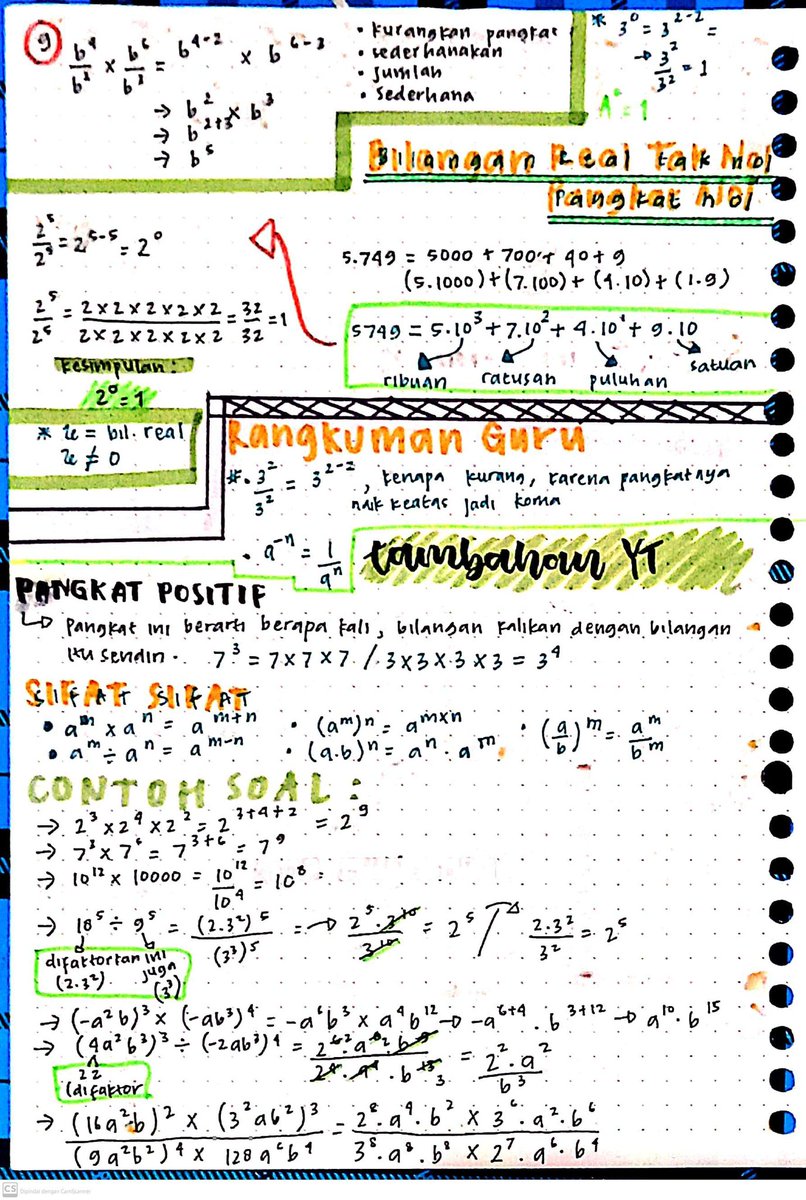 9 b⁴/b² × b⁶/b³ = b⁴⁻² × b⁶⁻³
→ b² × b³
→ b²⁺³
→ b⁵
• kurangkan pangkat
• sederhanakan
• jumlah
• sederhana
* 3⁰ = 3²⁻² =
→ 3²/3² = 1
A⁰ = 1
Bilangan Real Tak Nol
Pangkat Nol
2⁵/2⁵ = 2⁵⁻⁵ = 2⁰
2⁵/2⁵ = 2×2×2×2×2/2×2×2×2×2 = 32/32 = 1
Kesimpulan :
2⁰ = 1
5.749 = 5000 + 700 + 40 + 9
(5.1000)+(7.100)+(4.10)+(1.9)
5749 = 5.10³ + 7.10² + 4.10¹ + 9.10
ribuan ratusan puluhan satuan
* = bil. real
≠ 0
Rangkuman Guru
#. 3²/3² = 3²⁻², kenapa kurang, karena pangkatnya
naik keatas jadi
• a⁻ⁿ = 1/aⁿ
tambahan YT
PANGKAT POSITIF
↳ pangkat ini berarti berapa kali, bilangan kalikan dengan bilangan
itu sendiri. 7³ = 7×7×7 / 3×3×3×3 = 3⁴
SIFAT SIFAT
• aᵐ × aⁿ = aᵐ⁺ⁿ • (aᵐ)ⁿ = aᵐˣⁿ • (a/b)ᵐ = aᵐ/bᵐ
• aᵐ ÷ aⁿ = aᵐ⁻ⁿ • (a.b)ⁿ = aⁿ . aᵐ
CONTOH SOAL :
→ 2³ × 2⁴ × 2² = 2³⁺⁴⁺² = 2⁹
→ 7³ × 7⁶ = 7³⁺⁶ = 7⁹
→ 10¹² × 10000 = 10¹²/10⁴ = 10⁸
→ 18⁵ ÷ 9⁵ = (2.3²)⁵/(3³)⁵ = → 2⁵.3¹⁰/3¹⁰ = 2⁵ 2.3²/3² = 2⁵
difaktorkan ini
(2.3²) juga
(3³)
→ (-a²b)³ × (-ab³)⁴ = -a⁶b³ × a⁴b¹² → -a⁶⁺⁴ . b³⁺¹² → a¹⁰ . b¹⁵
→ (4a²b³)³ ÷ (-2ab³)⁴ = = 2².a²/b³
22
(difaktor
→ (16a²b)² × (3²ab²)³/(9a²b²)⁴ × 128a⁶b⁴ = 2⁸.a⁴.b² × 3⁶.a².b⁶/3⁸.a⁸.b⁸ × 2⁷.a⁶.b⁴
CS Dipindai dengan CamScanner